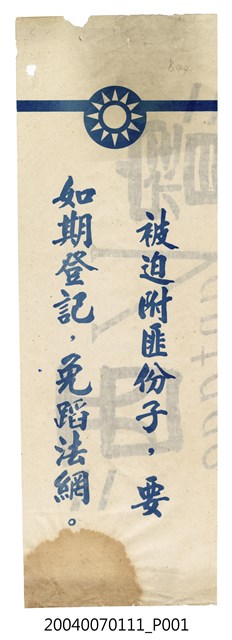 被迫附匪份子，要
如期登記，免蹈法網。
20040070111_P001